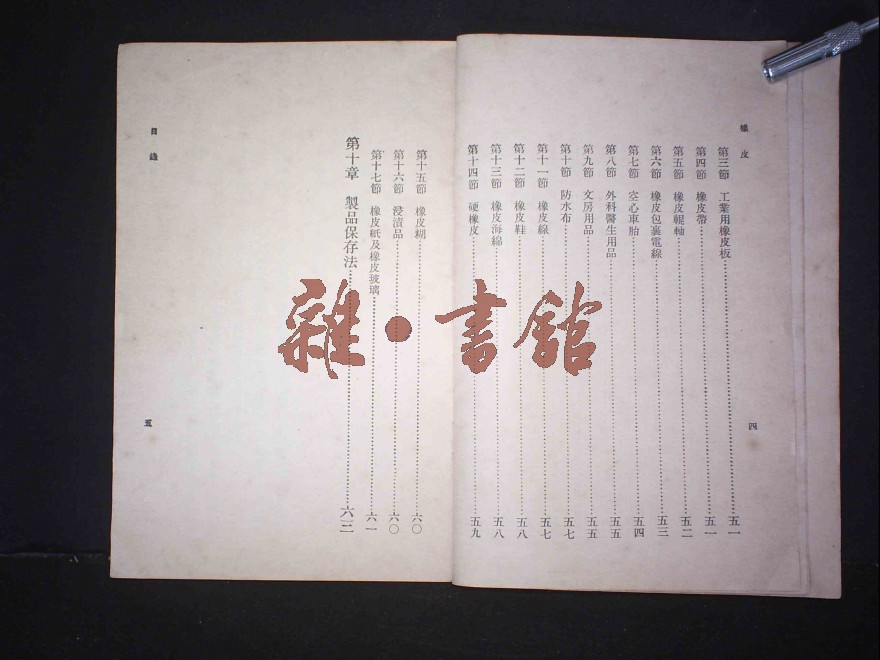 橡皮
第三節 工業用橡皮板……五一
第四節 橡皮帶……五一
第五節 橡皮輥軸……五二
第六節 橡皮包裹電線……五三
第七節 空心車胎……五四
第八節 外科醫生用品……五五
第九節 文房用品……五五
第十節 防水布……五七
第十一節 橡皮線……五七
第十二節 橡皮鞋……五八
第十三節 橡皮海綿……五八
第十四節 硬橡皮……五九
四
目錄
第十五節 橡皮糊……六〇
第十六節 浸漬品……六〇
第十七節 橡皮紙及橡皮玻璃……六一
第十章 製品保存法……六三
五
雜·書館